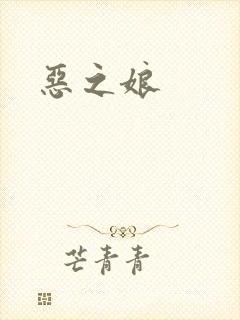 惡之娘
芒青青